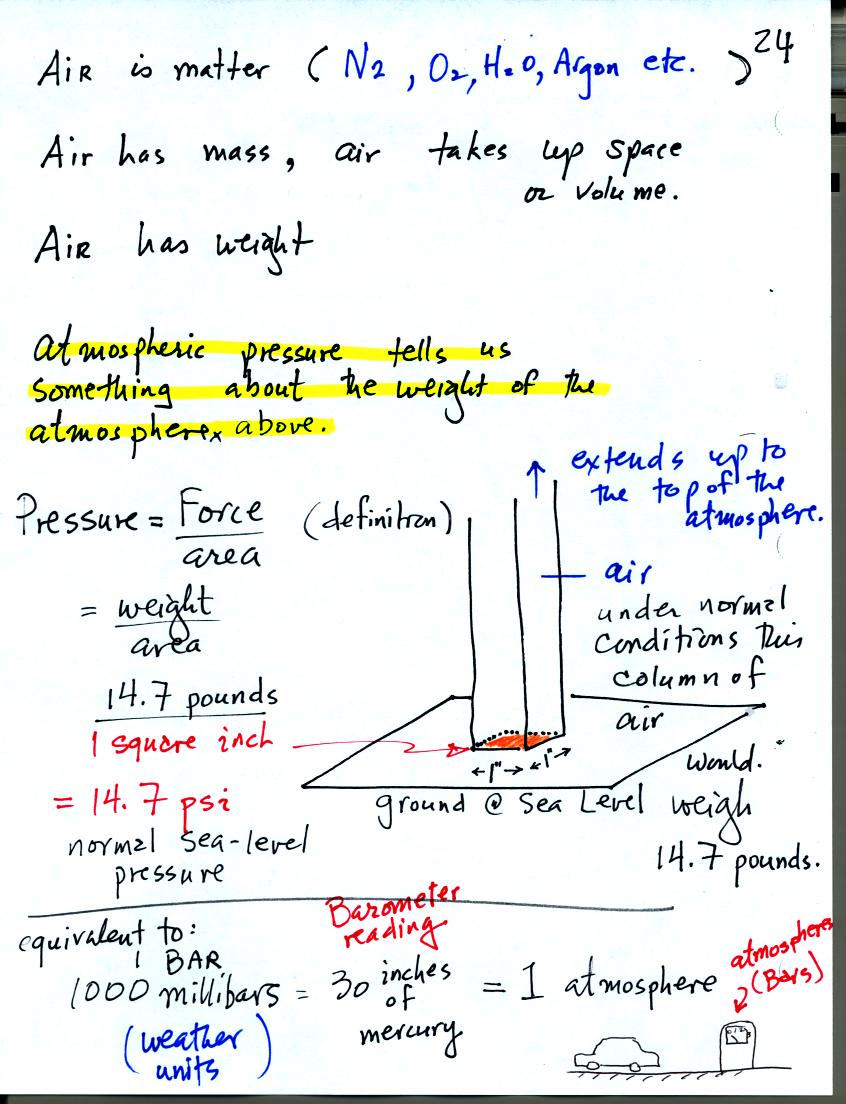 24
Air is matter ( N2 , O2, H2O, Argon etc. )
Air has mass, air takes up space
or volume.
Air has weight
atmospheric pressure tells us
something about the weight of the
atmosphere, above.
extends up to
the top of the
atmosphere.
Pressure = Force (definition)
area
= weight
area
14.7 pounds
1 square inch
= 14.7 psi
normal sea-level
pressure
air
under normal
conditions this
column of
air
would
weigh
14.7 pounds.
1" 1"
ground @ Sea Level
equivalent to:
1 BAR
1000 millibars = 30 inches of mercury = 1 atmosphere
(weather
units)
Barometer
reading
atmospheres
(Bars)